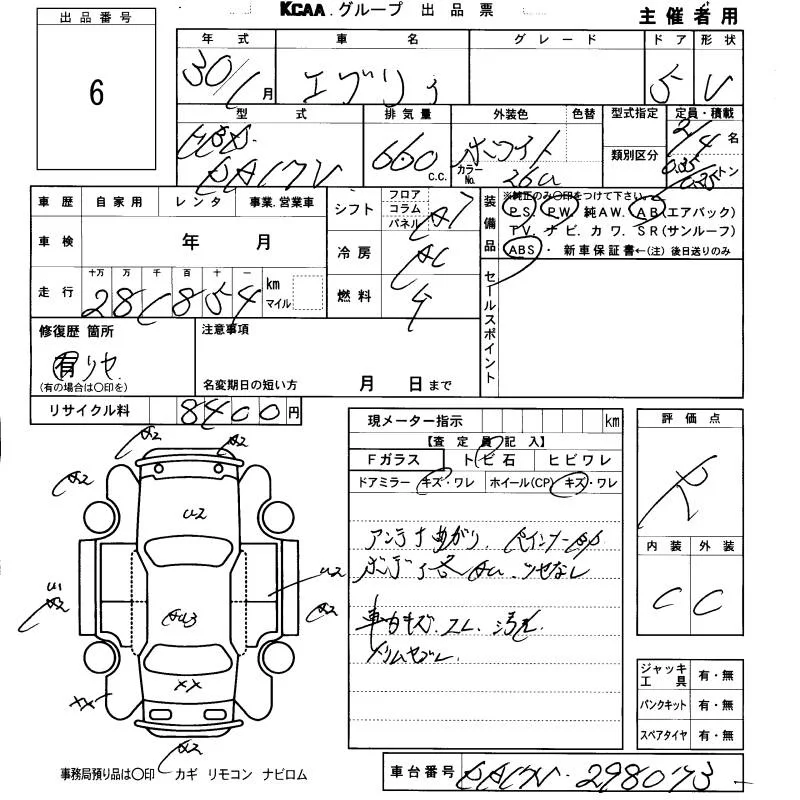 KCAA.グループ 出品票
主催者用
出品番号
6
年式 車名 グレード ドア 形状
30/1月 エブリィ 5 V
型式 排気量 外装色 色替 型式指定 定員・積載
HBD 660 c.c. ホワイト 2/4名
DA17V カラーNo. 26U 類別区分 0.35/0.25トン
車歴 自家用 レンタ 事業、営業車
シフト フロア コラム パネル AT
装備品 ※純正のみ○印をつけて下さい。
PS. PW. 純AW. AB(エアバック)
TV. ナビ. カワ. SR(サンルーフ)
ABS・ 新車保証書←(注) 後日送りのみ
車検 年 月
冷房 AC
走行 十万 万 千 百 十 一 km マイル
281854
燃料 4
セールスポイント
修復歴 箇所
有 リヤ
(有の場合は○印を)
注意事項
名変期日の短い方 月 日まで
リサイクル料 8400円
現メーター指示 km
【査定員記入】
Fガラス トビ石 ヒビワレ
ドアミラー キズ・ワレ ホイール(CP) キズ・ワレ
アンテナ曲がり.
ボディ各AU.ツヤなし
車内キズ.スレ.汚れ
評価点
R
内装 外装
C C
A2
A2
A2
U2
U1
A2
U2
A2
AU3
XX
A2
ジャッキ工具 有・無
パンクキット 有・無
スペアタイヤ 有・無
事務局預り品は○印 カギ リモコン ナビロム
車台番号 DA17V-298073